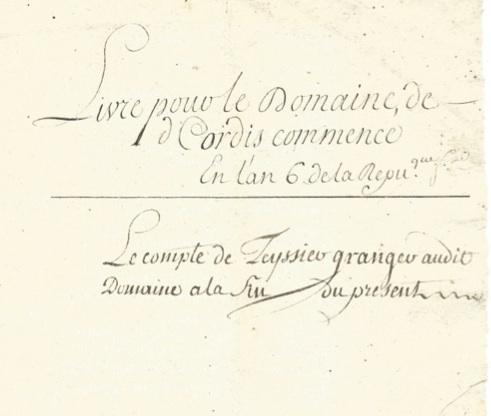 Livre pour le Domaine, de
d Cordis commence
En l'an 6 de la Repu.que
Le compte de Teyssier granger audit
Domaine a la fin du present